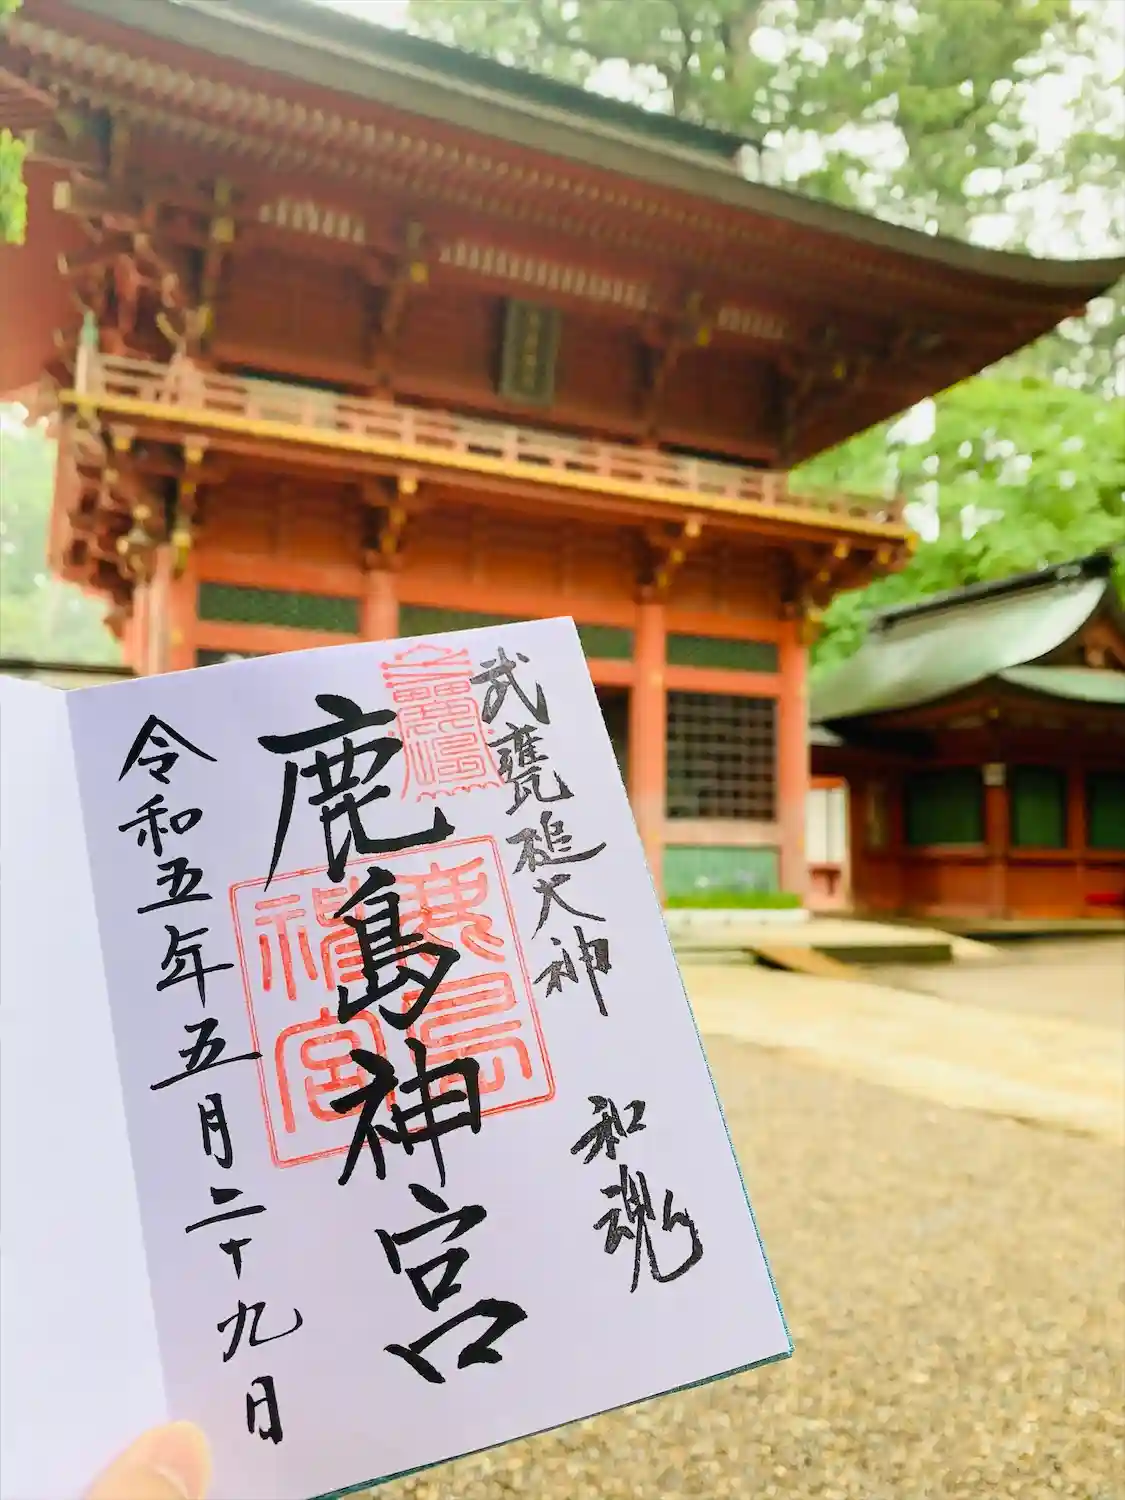 武甕槌大神 和魂
鹿島神宮
令和五年五月二十九日
鹿島
神宮